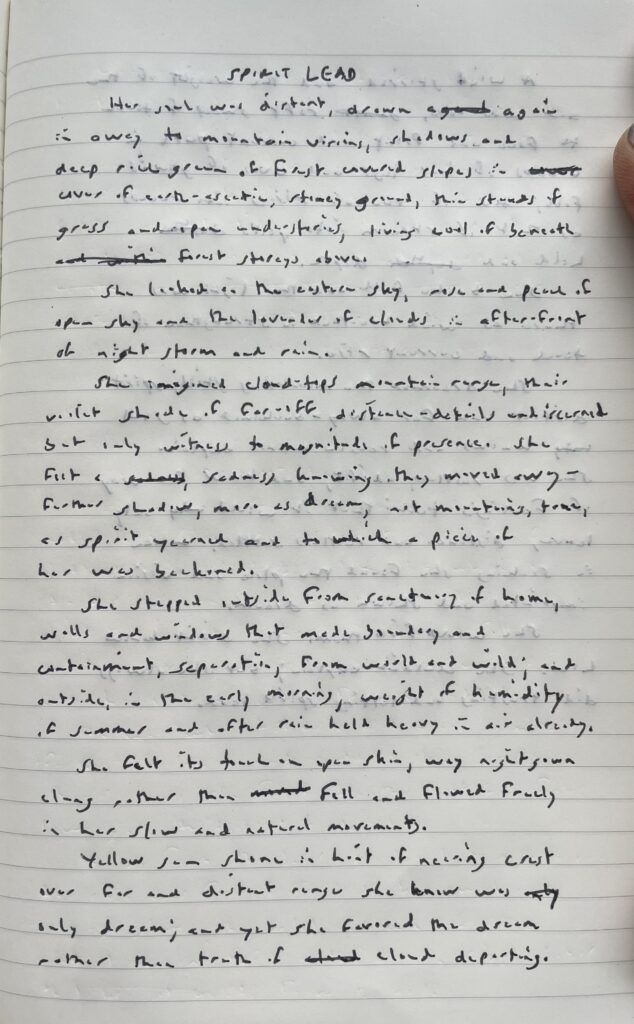 SPIRIT LEAD
Her soul was distant, drawn again again
in away to mountain visions, shadows and
deep rich green of forest covered slopes in cover
cover of earth-ascetic, stoney ground, thin stands of
grass and open understories, living coil of beneath
and within forest storeys above.
She looked on the eastern sky, rose and peach of
open sky and the lavender of clouds in after-front
of night storm and rain.
She imagined cloud-tops mountain range, their
violet shade of far-off distance-details undiscerned
but only witness to magnitude of presence. She
felt a sadness, sadness knowing they moved away-
further shadow, more as dream, not mountains, true,
as spirit yearned and to which a piece of
her was beckoned.
She stepped outside from sanctuary of home,
walls and windows that made boundary and
containment, separation, from world and wild; and
outside, in the early morning, weight of humidity
of summer and after rain held heavy in air already.
She felt its touch on open skin, way nightgown
clung rather than fell and flowed freely
in her slow and natural movements.
Yellow sun shone in hint of nearing crest
over far and distant range she knew was only
only dream; and yet she favored the dream
rather than truth of cloud cloud departing.